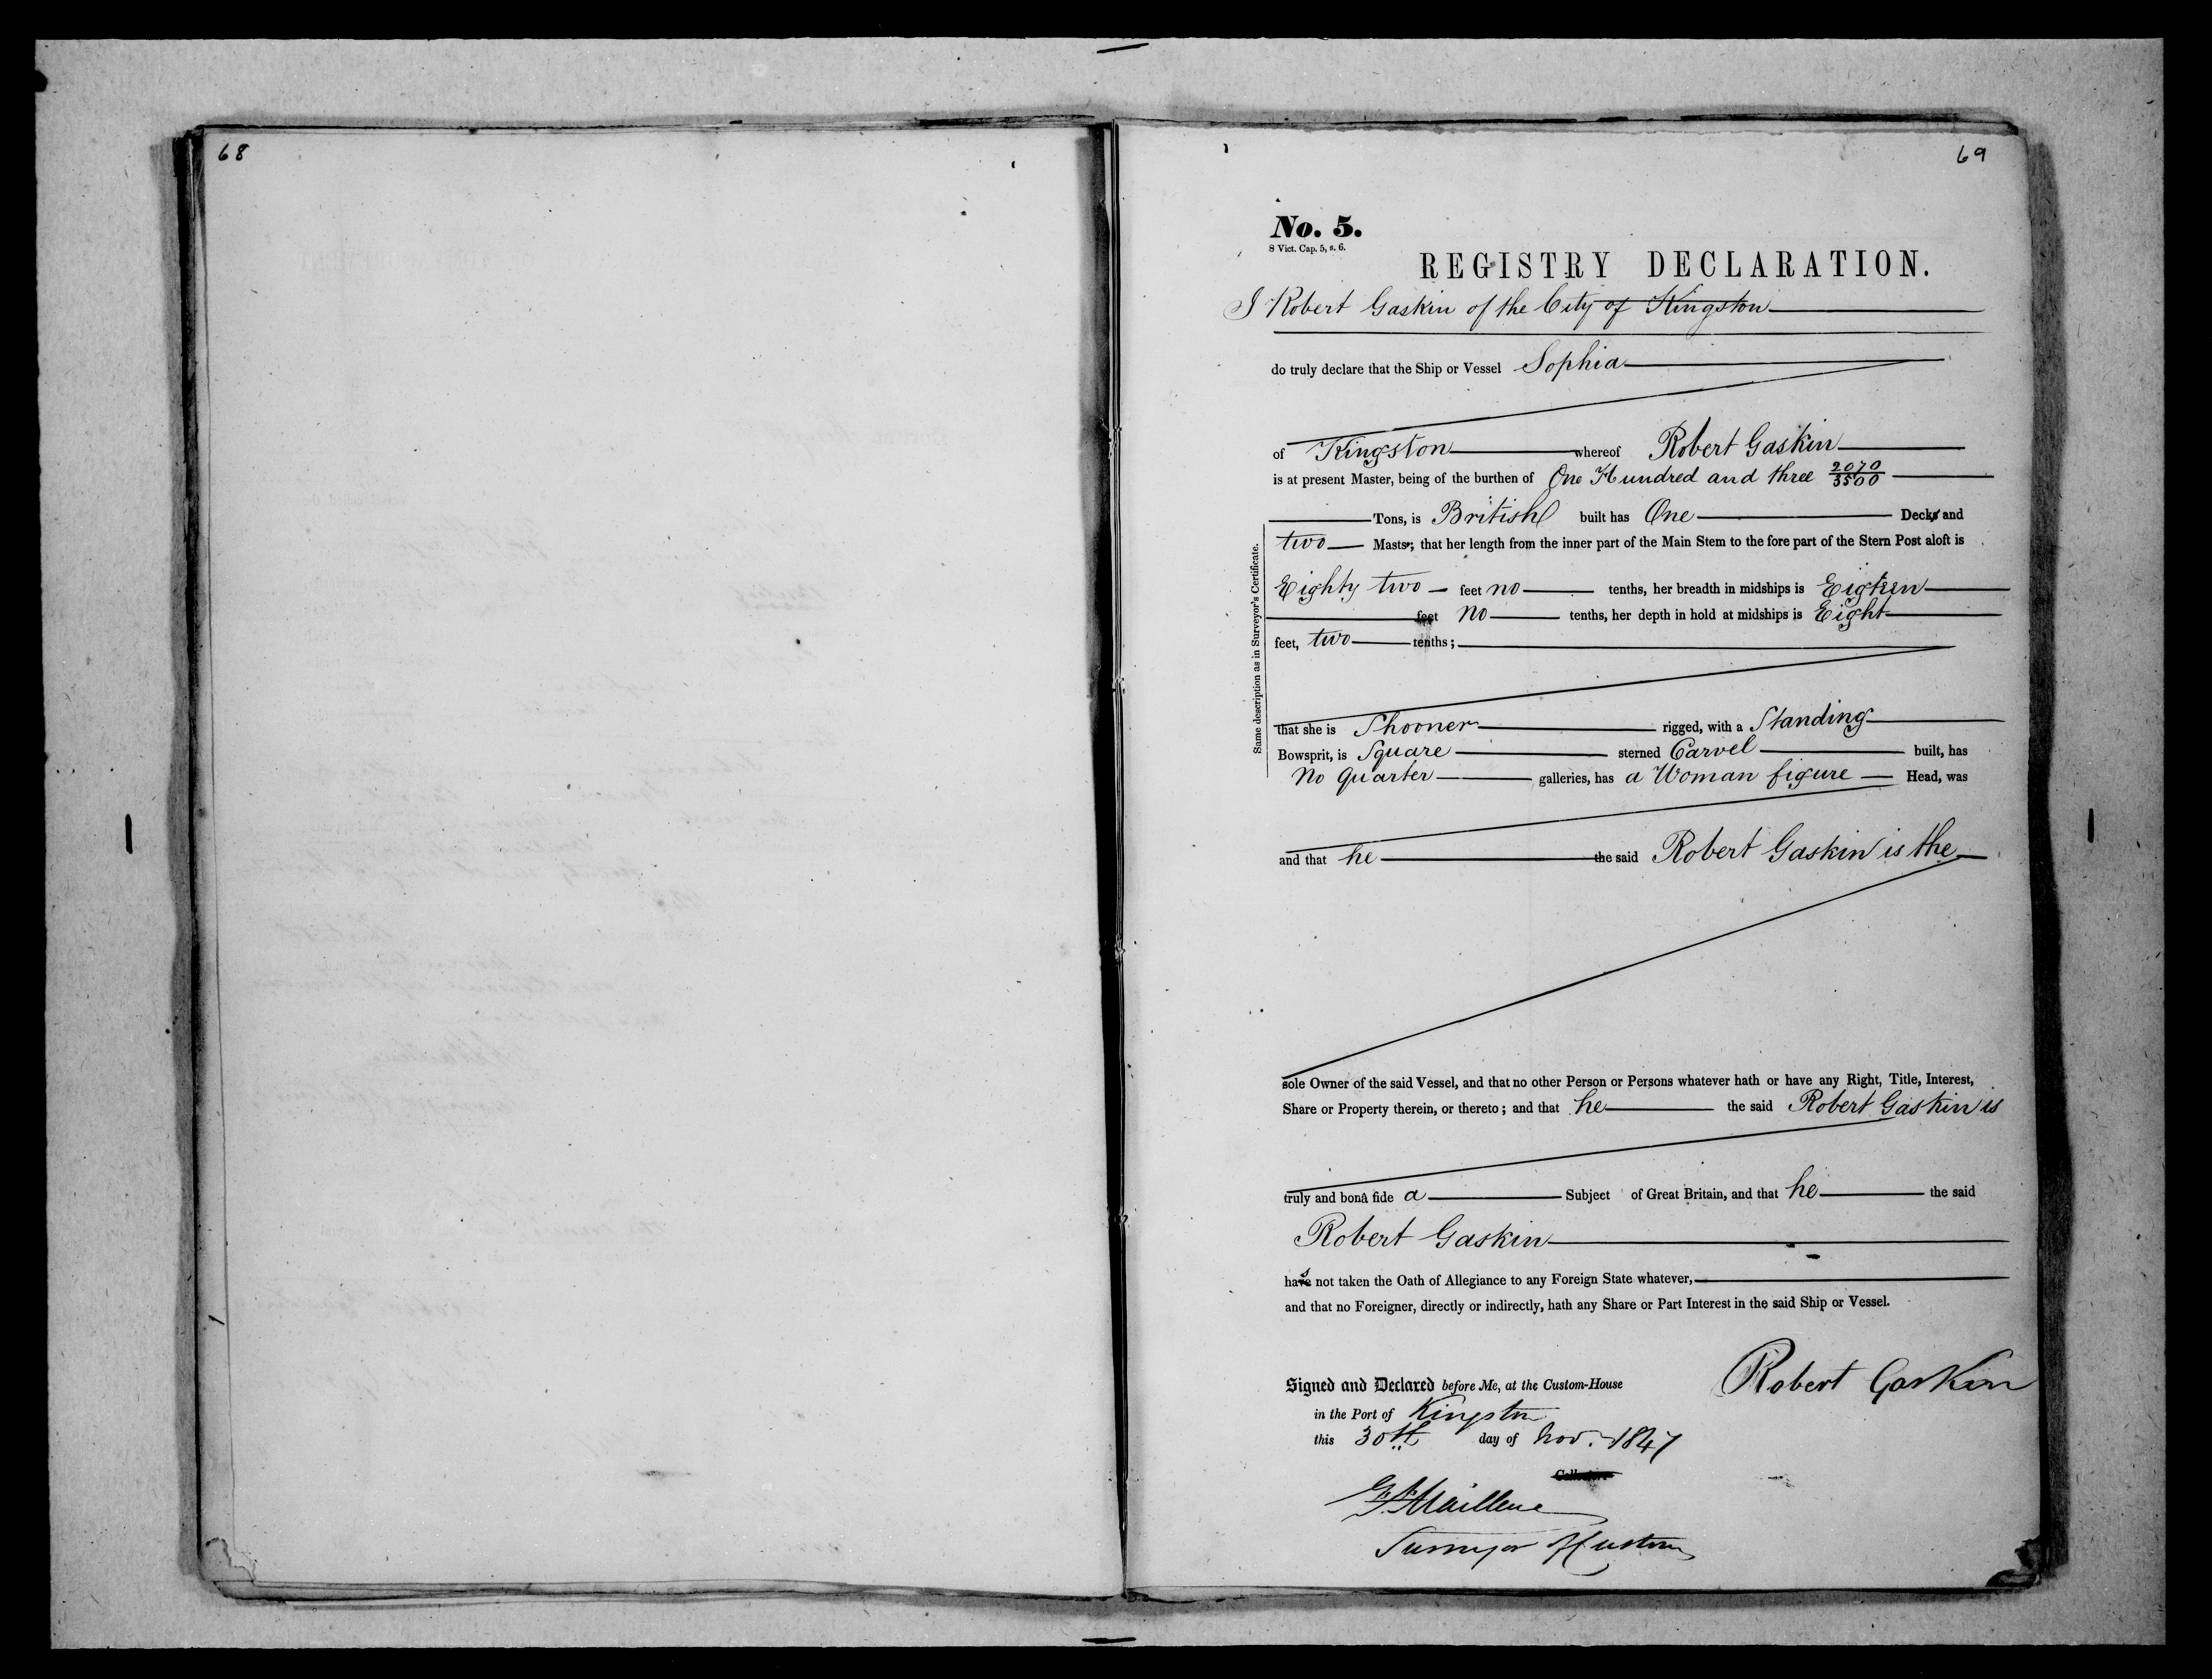 68
69
No. 5.
8 Vict. Cap. 5, s. 6.
REGISTRY DECLARATION.
I Robert Gaskin of the City of Kingston
do truly declare that the Ship or Vessel Sophia
of Kingston whereof Robert Gaskin
is at present Master, being of the burthen of One Hundred and three 2070/3500
Tons, is British built has One Decks and
two Masts; that her length from the inner part of the Main Stem to the fore part of the Stern Post aloft is
Eighty two feet no tenths, her breadth in midships is Eigteen
feet no tenths, her depth in hold at midships is Eight
feet, two tenths;
Same description as in Surveyor's Certificate.
that she is Shooner rigged, with a Standing
Bowsprit, is Square sterned Carvel built, has
No Quarter galleries, has a Woman figure Head, was
and that he the said Robert Gaskin is the
sole Owner of the said Vessel, and that no other Person or Persons whatever hath or have any Right, Title, Interest,
Share or Property therein, or thereto; and that he the said Robert Gaskin is
truly and bonâ fide a Subject of Great Britain, and that he the said
Robert Gaskin
has not taken the Oath of Allegiance to any Foreign State whatever,
and that no Foreigner, directly or indirectly, hath any Share or Part Interest in the said Ship or Vessel.
Signed and Declared before Me, at the Custom-House
Robert Gaskin
in the Port of Kingston
this 30th day of Nov. 1847
Collector
Surveyor of Customs